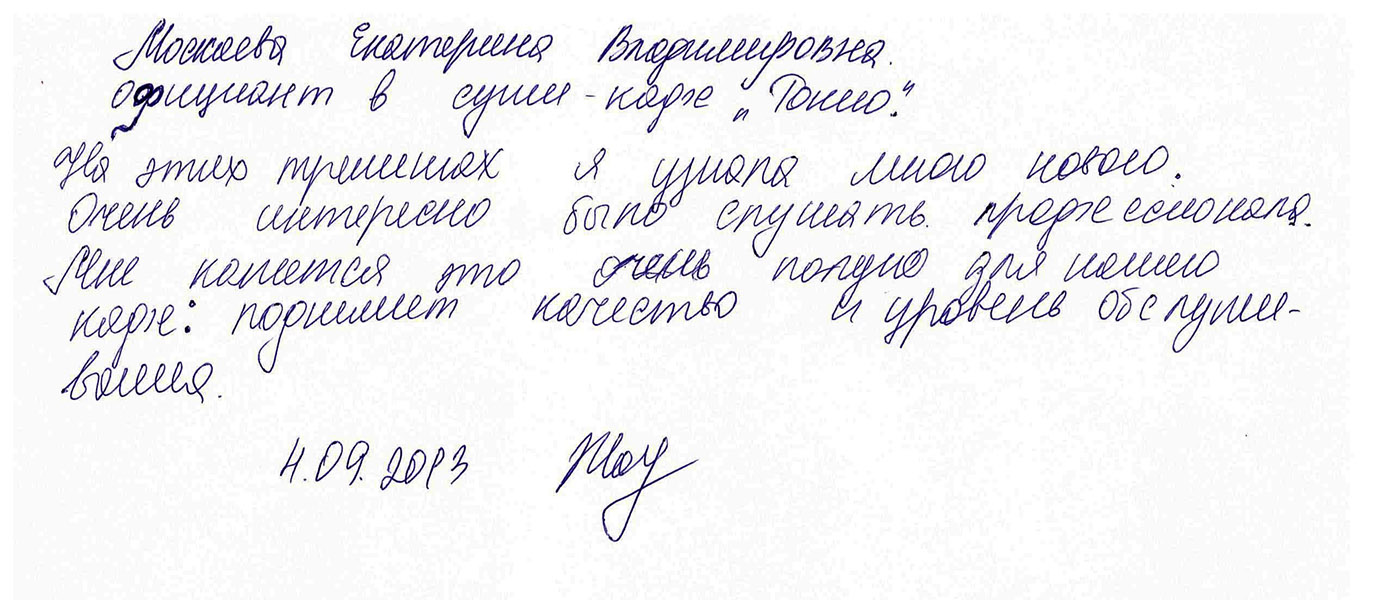 Москаева Екатерина Владимировна.
официант в суши-кафе "Токио".
На этих тренингах я узнала много нового.
Очень интересно было слушать профессионала.
Мне кажется это очень полезно для нашего
кафе: поднимет качество и уровень обслужи-
вания.
4.09.2013